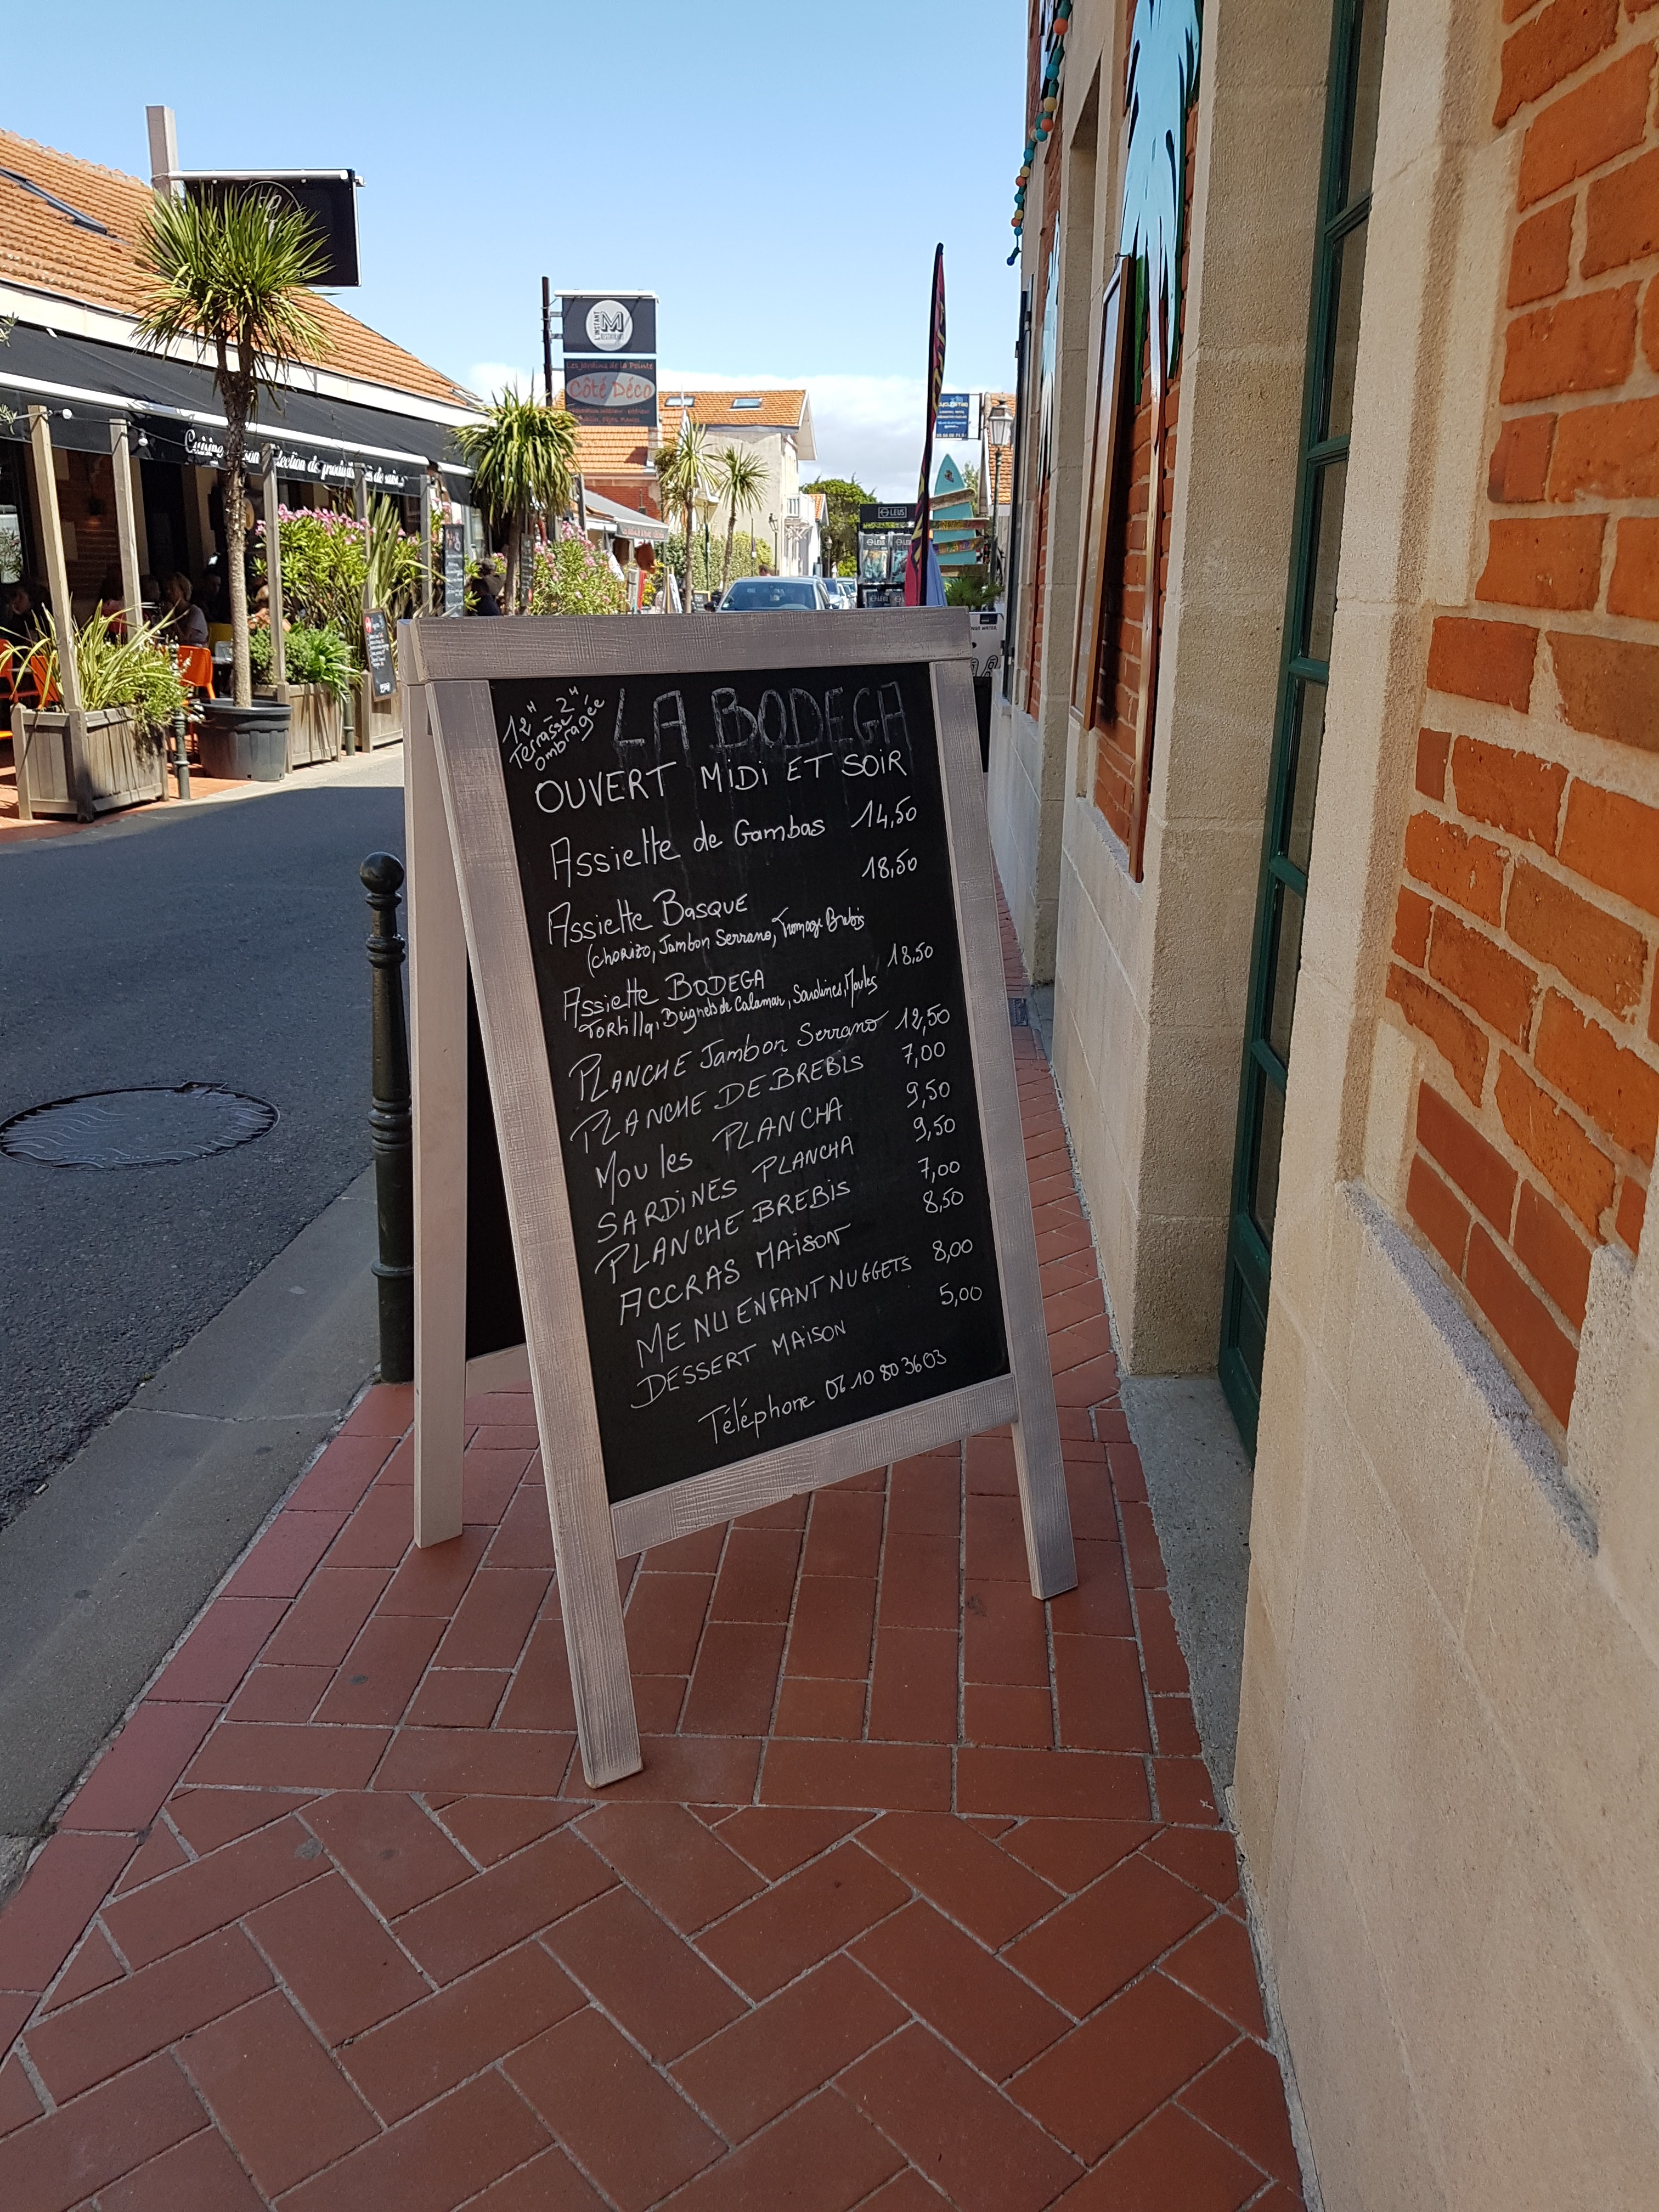 L'INSTANT
M
RESTAURANT
Les Jardins de la Pointe
Côté Déco
LEUS
12H - 2H
Terrasse
ombragée
LA BODEGA
OUVERT MiDi ET SOIR
Assiette de Gambas 14,50
Assiette BASQUE 18,50
(CHORIZO, Jambon Serrano, Fromage Brebis
Assiette BODEGA 18,50
TORTilla, Beignets de Calamar, Sardines, Moules
PLANCHE Jambon Serrano 12,50
PLANCHE DE BREBIS 7,00
Moules PLANCHA 9,50
SARDINES PLANCHA 9,50
PLANCHE BREBIS 7,00
ACCRAS MAISON 8,50
MENU ENFANT NUGGETS 8,00
DESSERT MAISON 5,00
Téléphone 06 10 80 36 03